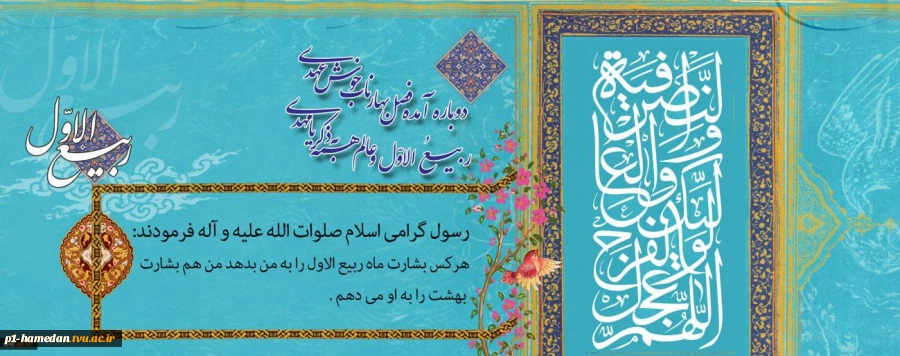 اللّهمّ عجّل
لوليّك الفرج
والعافية
والنّصر
دوباره آمده فصل بهار ناب خوش عهدی
ربیعُ الاوّل و عالم همه به ذکر یا مهدی
ربیع الاوّل
رسول گرامی اسلام صلوات الله علیه و آله فرمودند:
هرکس بشارت ماه ربیع الاول را به من بدهد من هم بشارت
بهشت را به او می دهم .
p1-hamedan.tvu.ac.ir